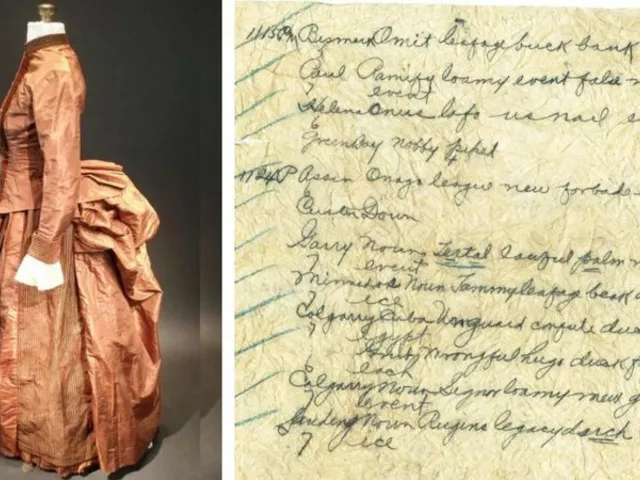 1115PM Bismark Omit leafage buck bank
Paul Ramify loamy event false
7 event
Helena Onus lofo us nail
6
Greenbay nobby piped
4
1124P Assin Onago league new forbade
Custer Down
Garry noun Tertal lawful palm
7 event
Minnedos noun Jammyleafage beak
7 ice
Calgarry Cuba Unguard confute duck
7 Egypt
Greeby wrongful hugo duck
each
Calgarry noun Signor loamy new
7 event
Landing noun Rugins legacy duck
7 ice